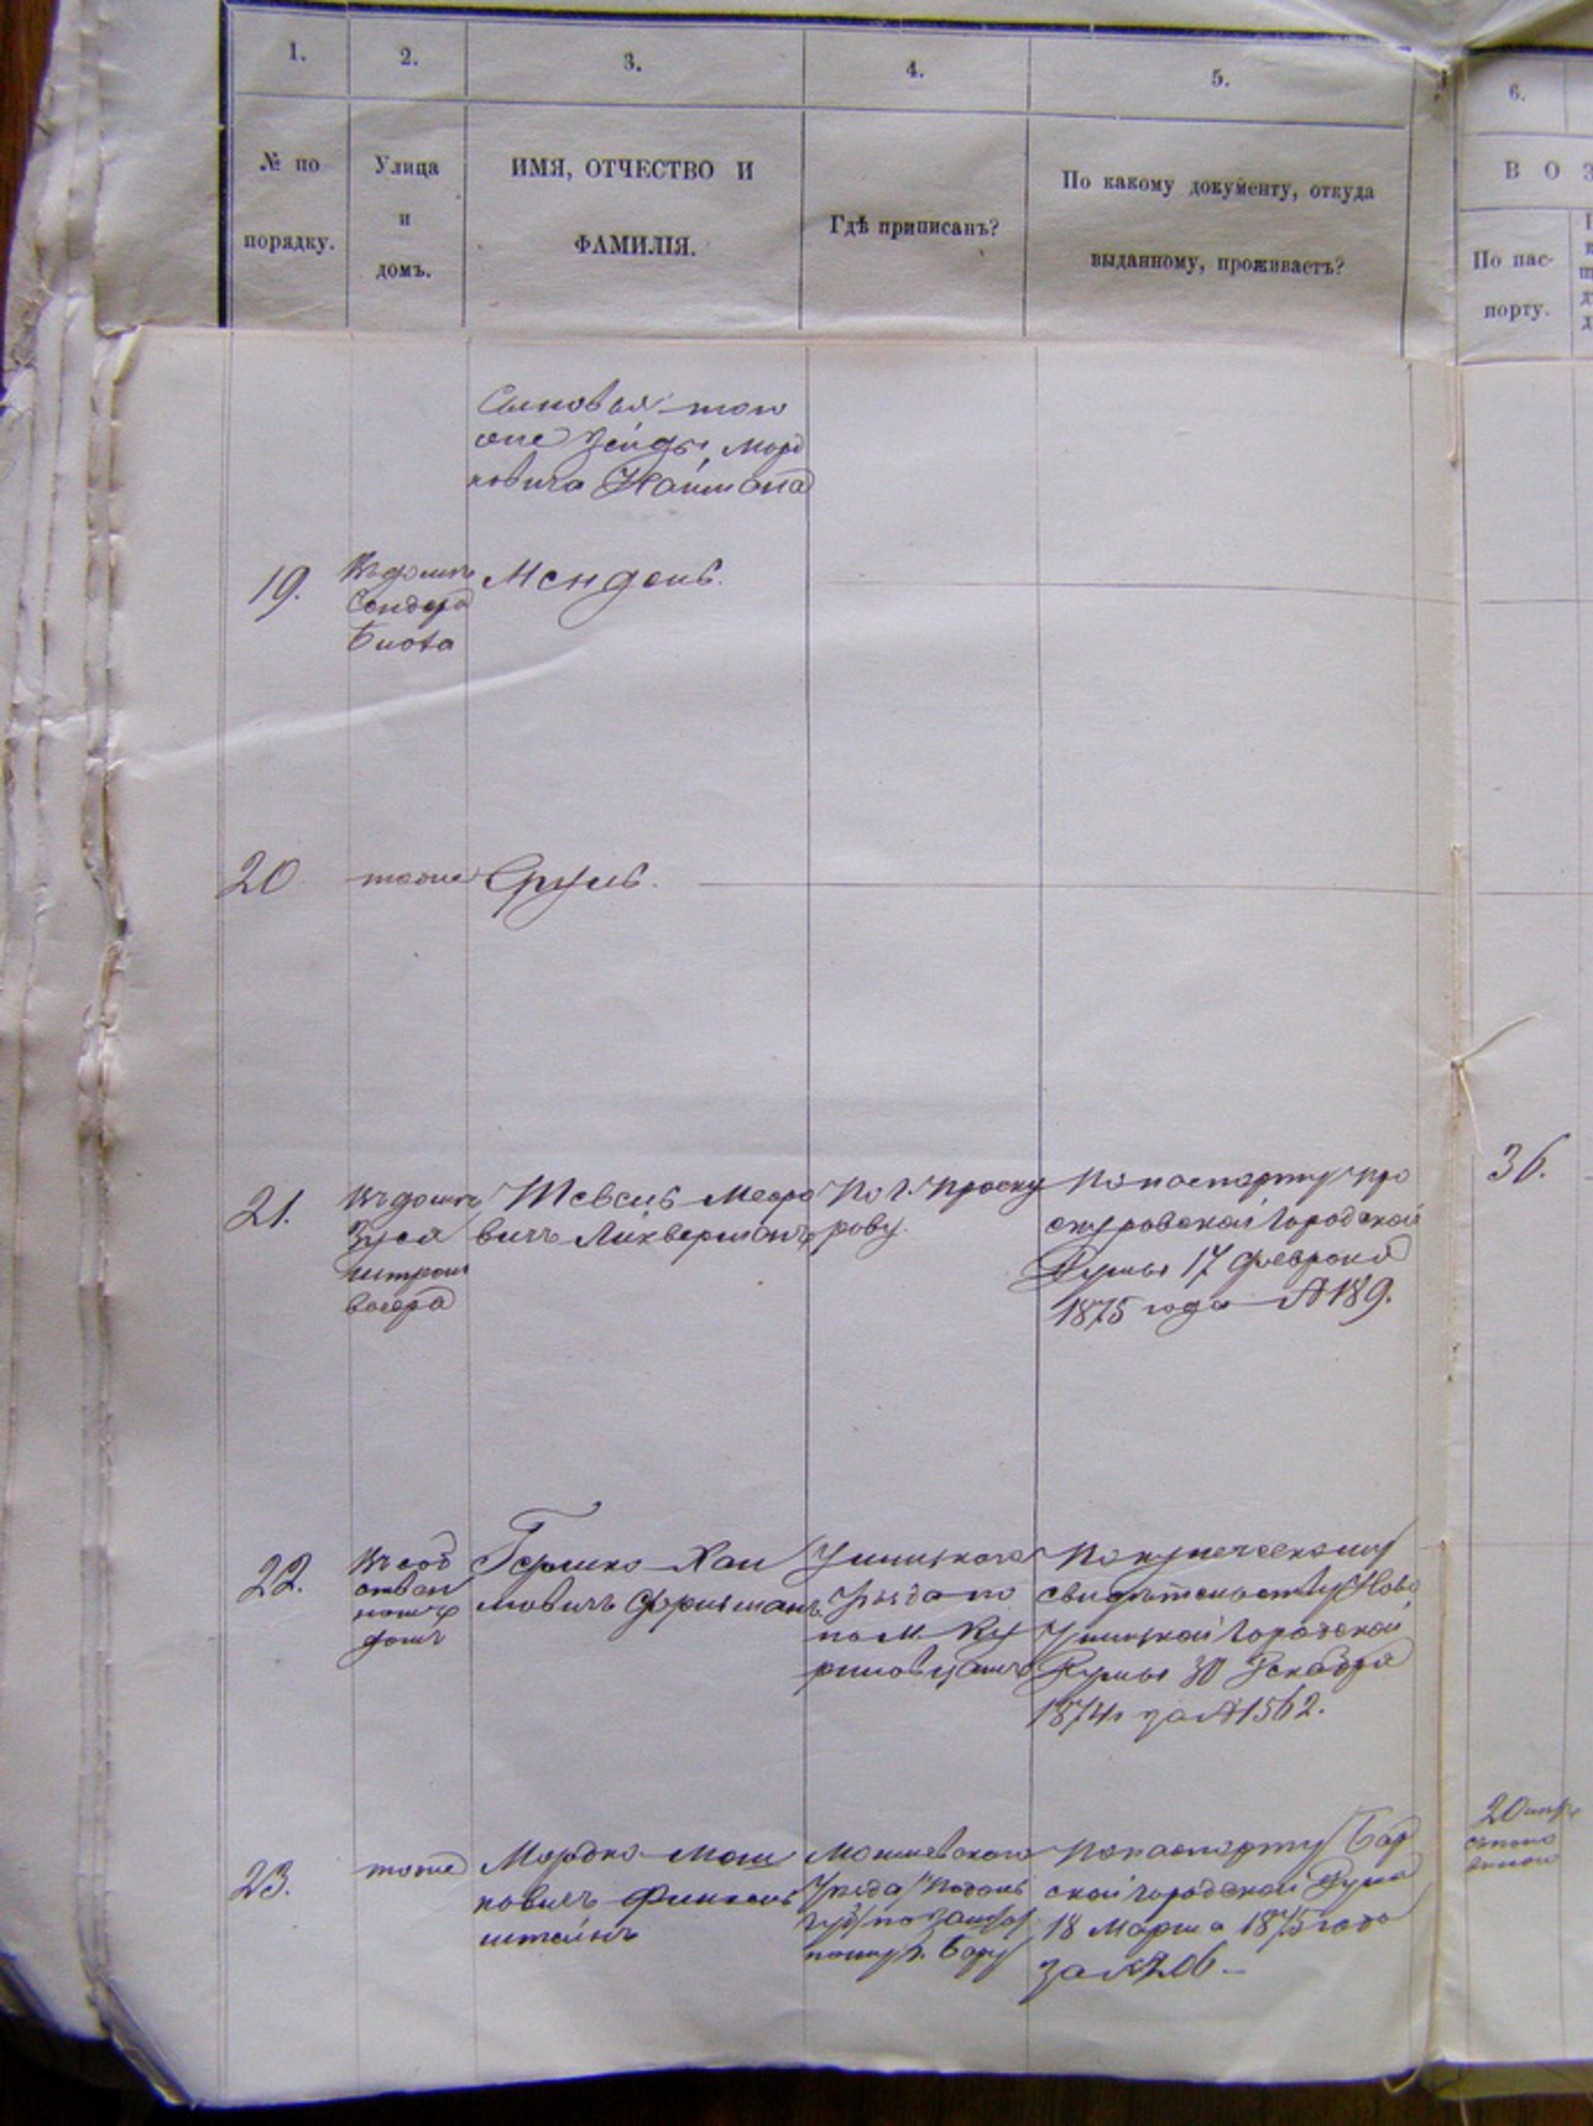 1.
2.
3.
4.
5.
6.
№ по
порядку.
Улица
и
домъ.
ИМЯ, ОТЧЕСТВО И
ФАМИЛІЯ.
Гдѣ приписанъ?
По какому документу, откуда
выданному, проживаетъ?
В О З
По пас-
порту.
Сыновья того
же Зейды Морд
ковича Наймана
19.
Въ домѣ
Сендера
Мендель.
20
тоже
Сруль.
21.
Въ домѣ
Зуся
Шевель Мееро
вичъ Ликверманъ
По г. Проску
рову.
По паспорту Про
скуровской Городской
Думы 17 февраля
1875 года № 189.
36.
22.
Въ соб
ствен
номъ
домѣ
Гершко Хаи
мовичъ Фурманъ
Ушицкаго
Уѣзда по
по м. Ку
риловцамъ
По купеческому
свидѣтельству Ново
Ушицкой Городской
Думы 30 Декабря
1874 г за № 1562.
23.
тоже
Мордко Мош
ковичъ Финкель
штейнъ
Могилевского
Уѣзда Подоль
губ по
г. Бару
По паспорту Бар
ской городской Думы
18 Марта 1875 года
за № 206
20